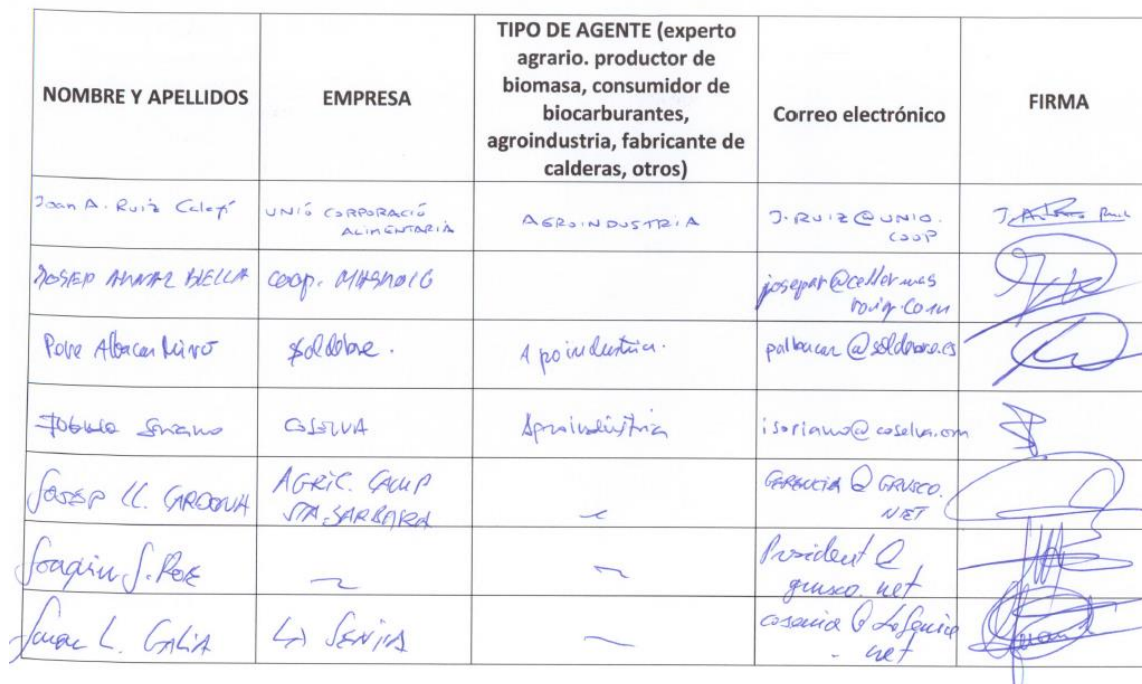 NOMBRE Y APELLIDOS
EMPRESA
TIPO DE AGENTE (experto
agrario. productor de
biomasa, consumidor de
biocarburantes,
agroindustria, fabricante de
calderas, otros)
Correo electrónico
FIRMA
Joan A. Ruiz
UNIÓ CORPORACIÓ
ALIMENTARIA
AGROINDUSTRIA
J.RUIZ@UNIO.
COOP
JOSEP
COOP.
josepar@cellermas
roig.com
Pere
Soldebre.
Agroindustria.
@soldebre.es
COSELVA
Agroindústria
isoriano@coselva.com
JOSEP LL. CARDONA
AGRIC. CAMP
STA. BARBARA
GERENCIA @ GRUSCO.
NET
Joaquin
President @
grusco.net
L. GALIA
LA SENIA
@ LaSenia
net